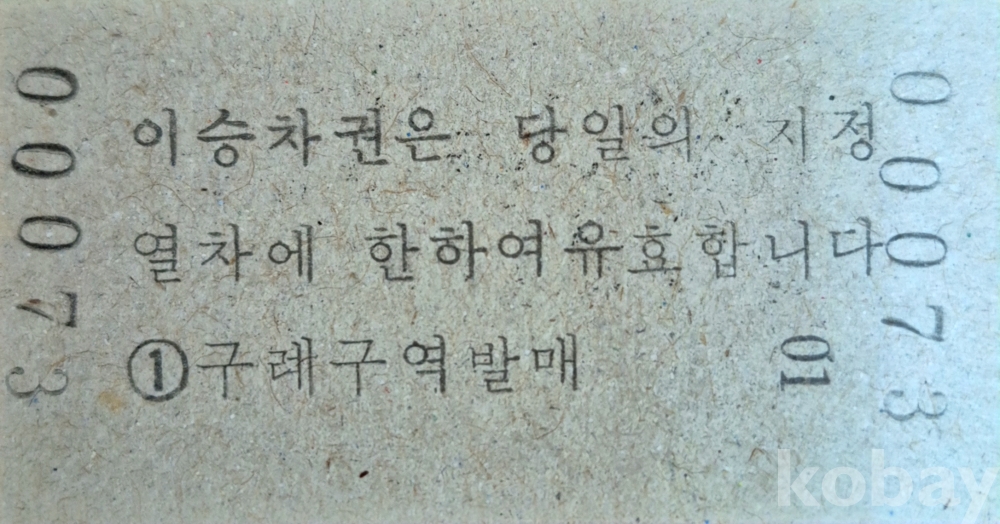 00073
이승차권은 당일의 지정
열차에 한하여유효합니다
①구례구역발매
01
00073
kobay